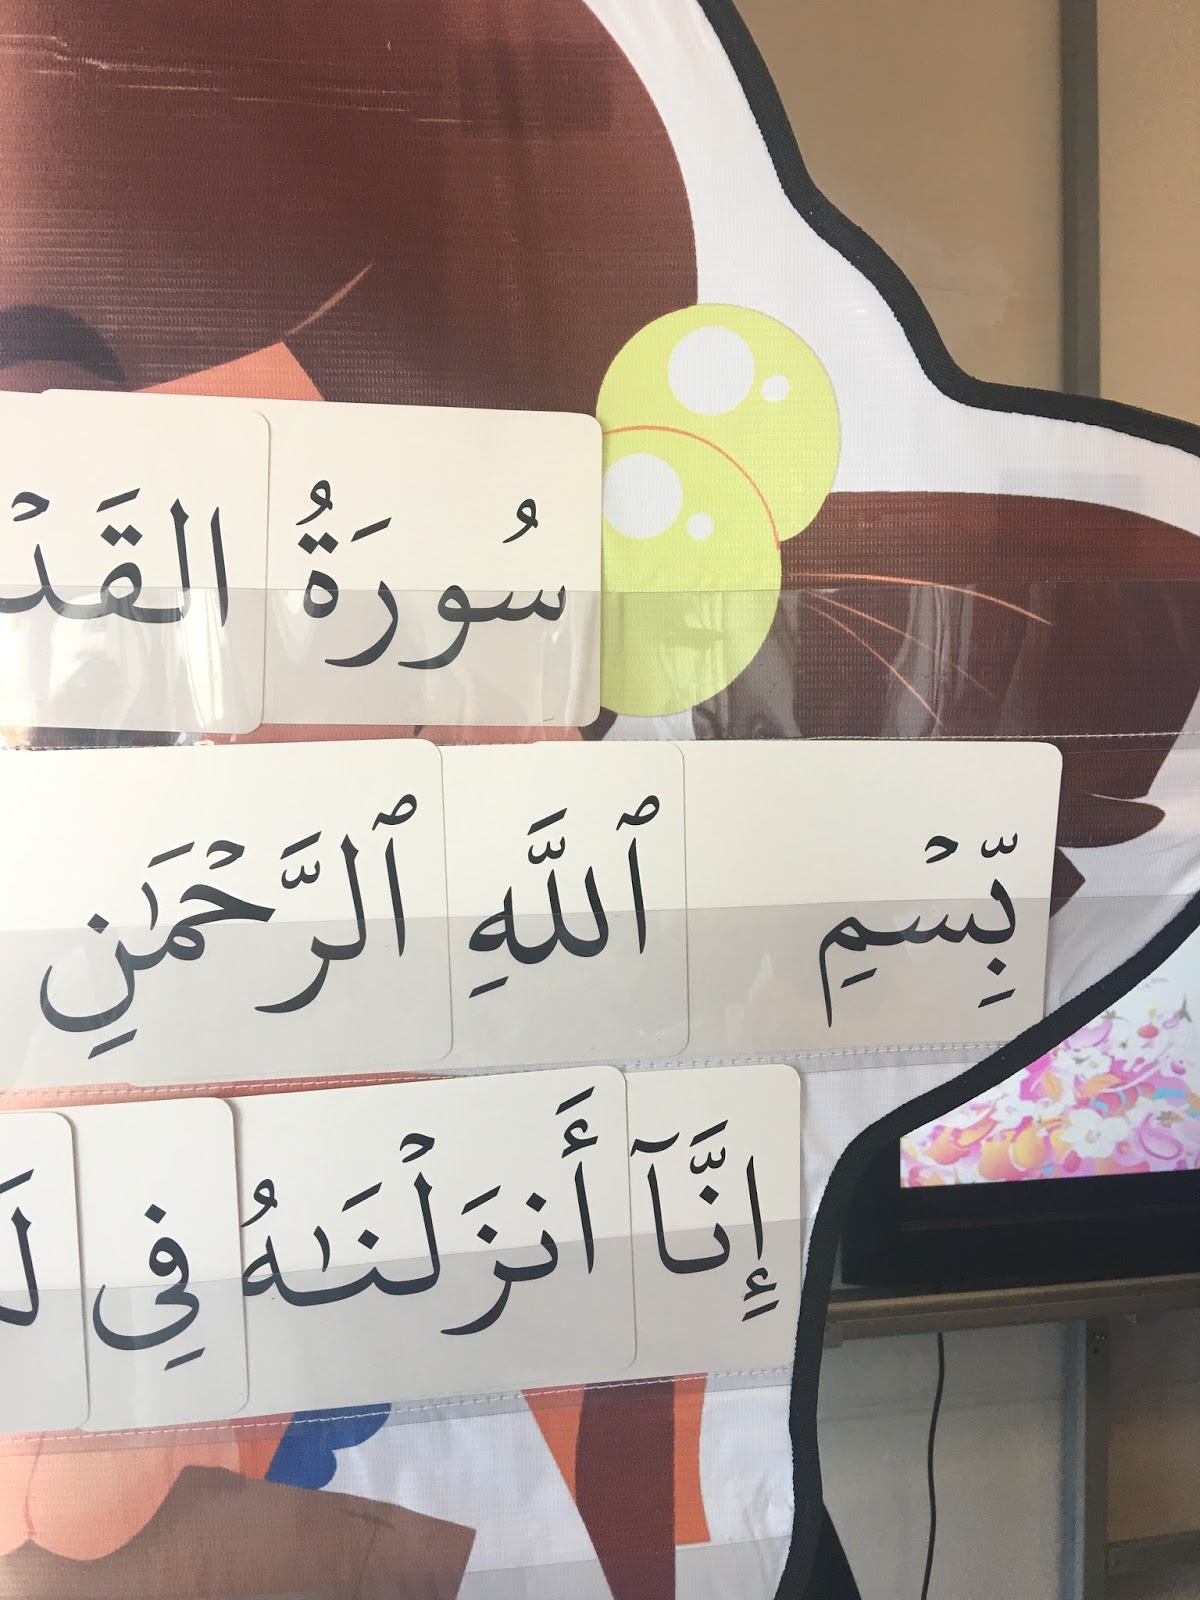 سُورَةُ القَدْ
بِّسْمِ ٱللَّهِ ٱلرَّحْمَٰنِ
إِنَّآ أَنزَلْنَٰهُ فِي لَ